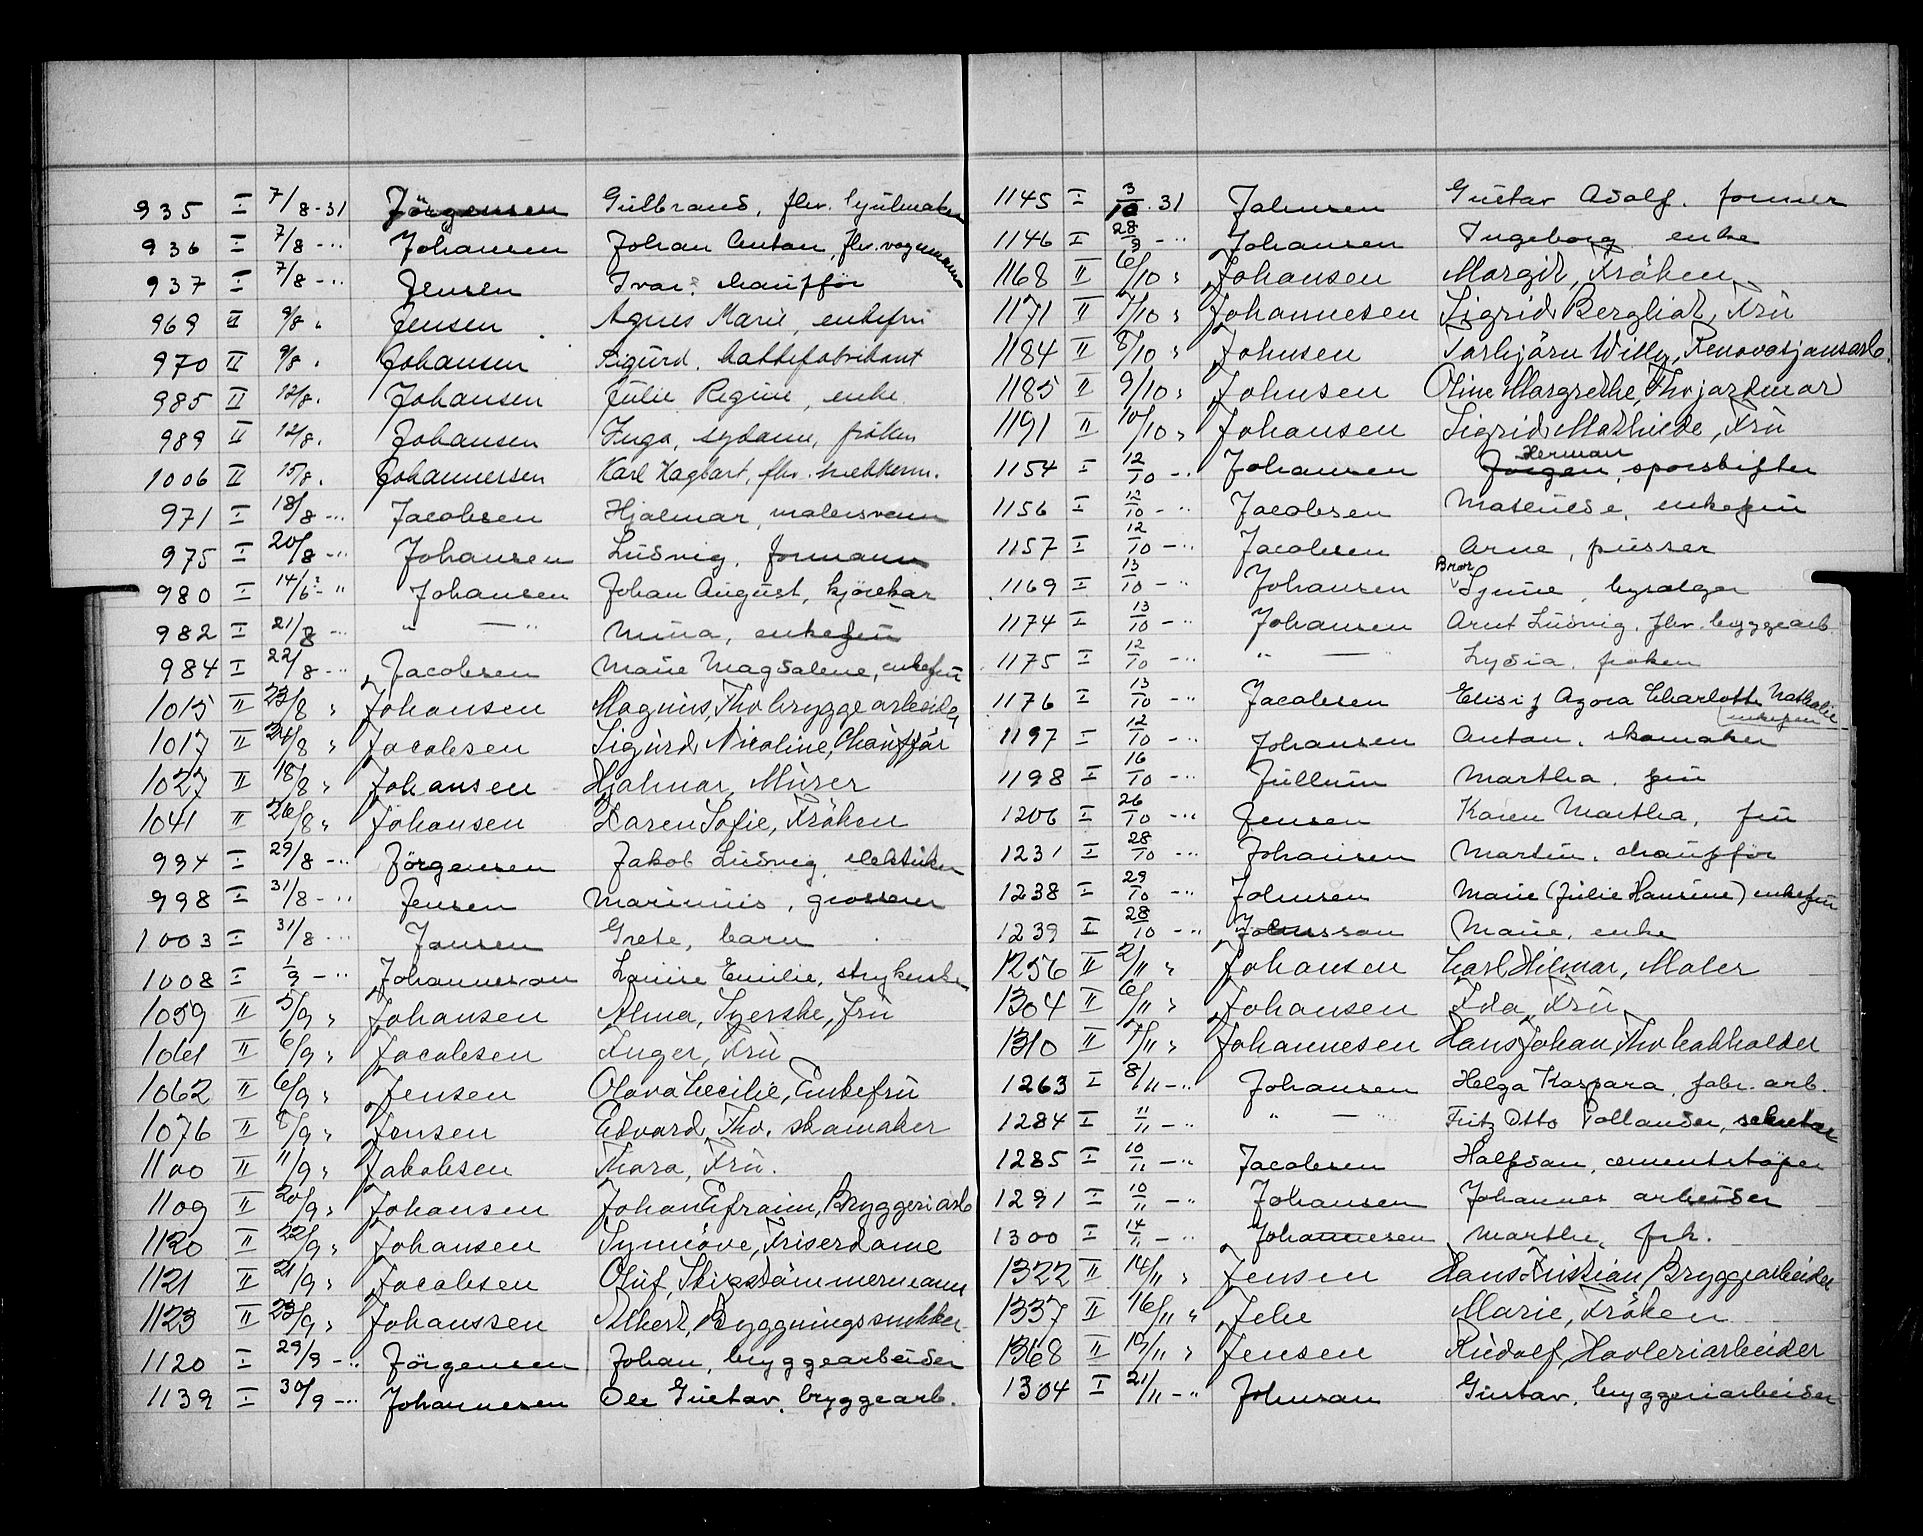 935 I 7/8-31 Jörgensen Gulbrand, fhv. hjulmaker
936 I 7/8 -" Johansen Johan Anton, fhv. vognmann
937 I 7/8 -" Jensen Ivar, chauffør
969 II 9/8 " Jensen Agnes Marie, enkefru
970 II 9/8 " Johansen Sigurd, hattefabrikant
985 II 12/8 " Johansen Julie Regine, enke
989 II 12/8 " Johansen Inga, sydame, frøken
1006 II 15/8 " Johannessen Karl Hagbart, fhv. snekkerm.
971 I 18/8 -" Jacobsen Hjalmar, malersvenn
975 I 20/8 -" Johansen Ludvig, formann
980 I 14/6 -" Johansen Johan August, kjörekar
982 I 21/8 -" " — " Mina, enkefru
984 I 22/8 -" Jacobsen Marie Magdalene, enkefru
1015 II 23/8 " Johansen Magnus, Fhv bryggearbeider
1017 II 24/8 " Jacobsen Sigurd Nicoline, Chaufför
1027 II 18/8 " Johansen Hjalmar, Murer
1041 II 26/8 " Johansen Karen Sofie, Fröken
994 I 29/8 -" Jörgensen Jakob Ludvig, elektriker
998 I 31/8 -" Jensen Marinius, grosserer
1003 I 31/8 -" Jansen Grete, barn
1008 I 1/9 -" Johannesson Louise Emilie, strykerske
1059 II 5/9 " Johansen Alma, Syerske, fru
1061 II 6/9 " Jacobsen Inger, Fru
1062 II 6/9 " Jensen Olava Cecilie, Enkefru
1076 II 8/9 " Jensen Edvard, Fhv. skomaker
1100 II 11/9 " Jakobsen Thora, Fru.
1109 II 20/9 " Johansen Johan Efraim, Bryggeriarb
1120 II 22/9 " Johansen Synnöve, Friserdame
1121 II 21/9 " Jacobsen Oluf, Skipstömmermann
1123 II 23/9 " Johanssen Albert, Byggningssnekker
1120 I 29/9 -" Jörgensen Johan, bryggearbeider
1139 I 30/9 -" Johannesen Ole Gustav, bryggearb.
1145 I 3/10.31 Johnsen Gustav Adolf, former
1146 I 28/9 -" Johansen Ingeborg enke
1168 II 6/10 " Johansen Margit, Fröken
1171 II 7/10 " Johannesen Sigrid Bergliot, Fru
1184 II 8/10 " Johnsen Torbjörn Willy, Renovasjonsarb.
1185 II 9/10 " Johnsen Oline Margrethe, Fhv jordmor
1191 II 10/10 " Johansen Sigrid Mathilde, Fru
1154 I 12/10 -" Johansen Herman, sporskifter
1156 I 12/10 -" Jacobsen Mathilde, enkefru
1157 I 12/10 -" Jacobsen Arne, pusser
1169 I 13/10 -" Johansen Bror Signe, byselger
1174 I 13/10 -" Johansen Arnt Ludvig, fhv. bryggearb
1175 I 12/10 -" " — " Lydia, frøken
1176 I 13/10 -" Jacobsen Elisif Agora Charlotte Nathalie
enkefru
1197 I 12/10 -" Johansen Anton, skomaker
1198 I 16/10 -" Jullum Martha, fru
1206 I 26/10 -" Jensen Karen Martha, fru
1231 I 28/10 -" Johansen Martin, chauffør
1238 I 29/10 -" Johnsen Marie (Julie Hansine) enkefru
1239 I 28/10 -" Johnsson Marie, enke
1256 II 2/11 " Johansen Carl Hilmar, Maler
1304 II 6/11 " Johansen Ida, Fru
1310 II 7/11 " Johannesen Hans Johan, Fhv kakholder
1263 I 8/11 -" Johansen Helga Kaspara, fabr. arb.
1284 I 11/11 -" " — " Fritz Otto Pollander, sekretær
1285 I 10/11 -" Jacobsen Halfdan, cementstøper
1291 I 10/11 -" Johansen Johannes arbeider
1300 I 14/11 -" Johannesen Marthe, frk.
1322 II 14/11 " Jensen Hans Kristian, Bryggearbeider
1337 II 16/11 " Jebe Marie, Fröken
1368 II 19/11 " Jensen Rudolf, Høvleriarbeider
1304 I 21/11 -" Johnson Gustav, bryggeriarbeider